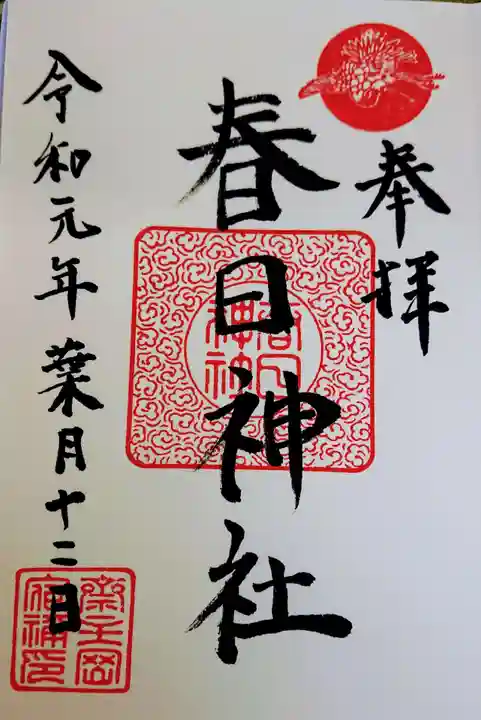 奉拝
春日神社
令和元年葉月十二日
春日神社